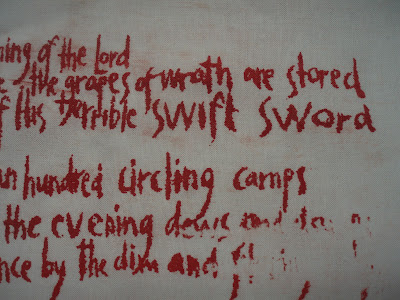 ning of the lord
e the grapes of wrath are stored
f His terrible swift sword
hundred circling camps
the evening dews and
nce by the dim and